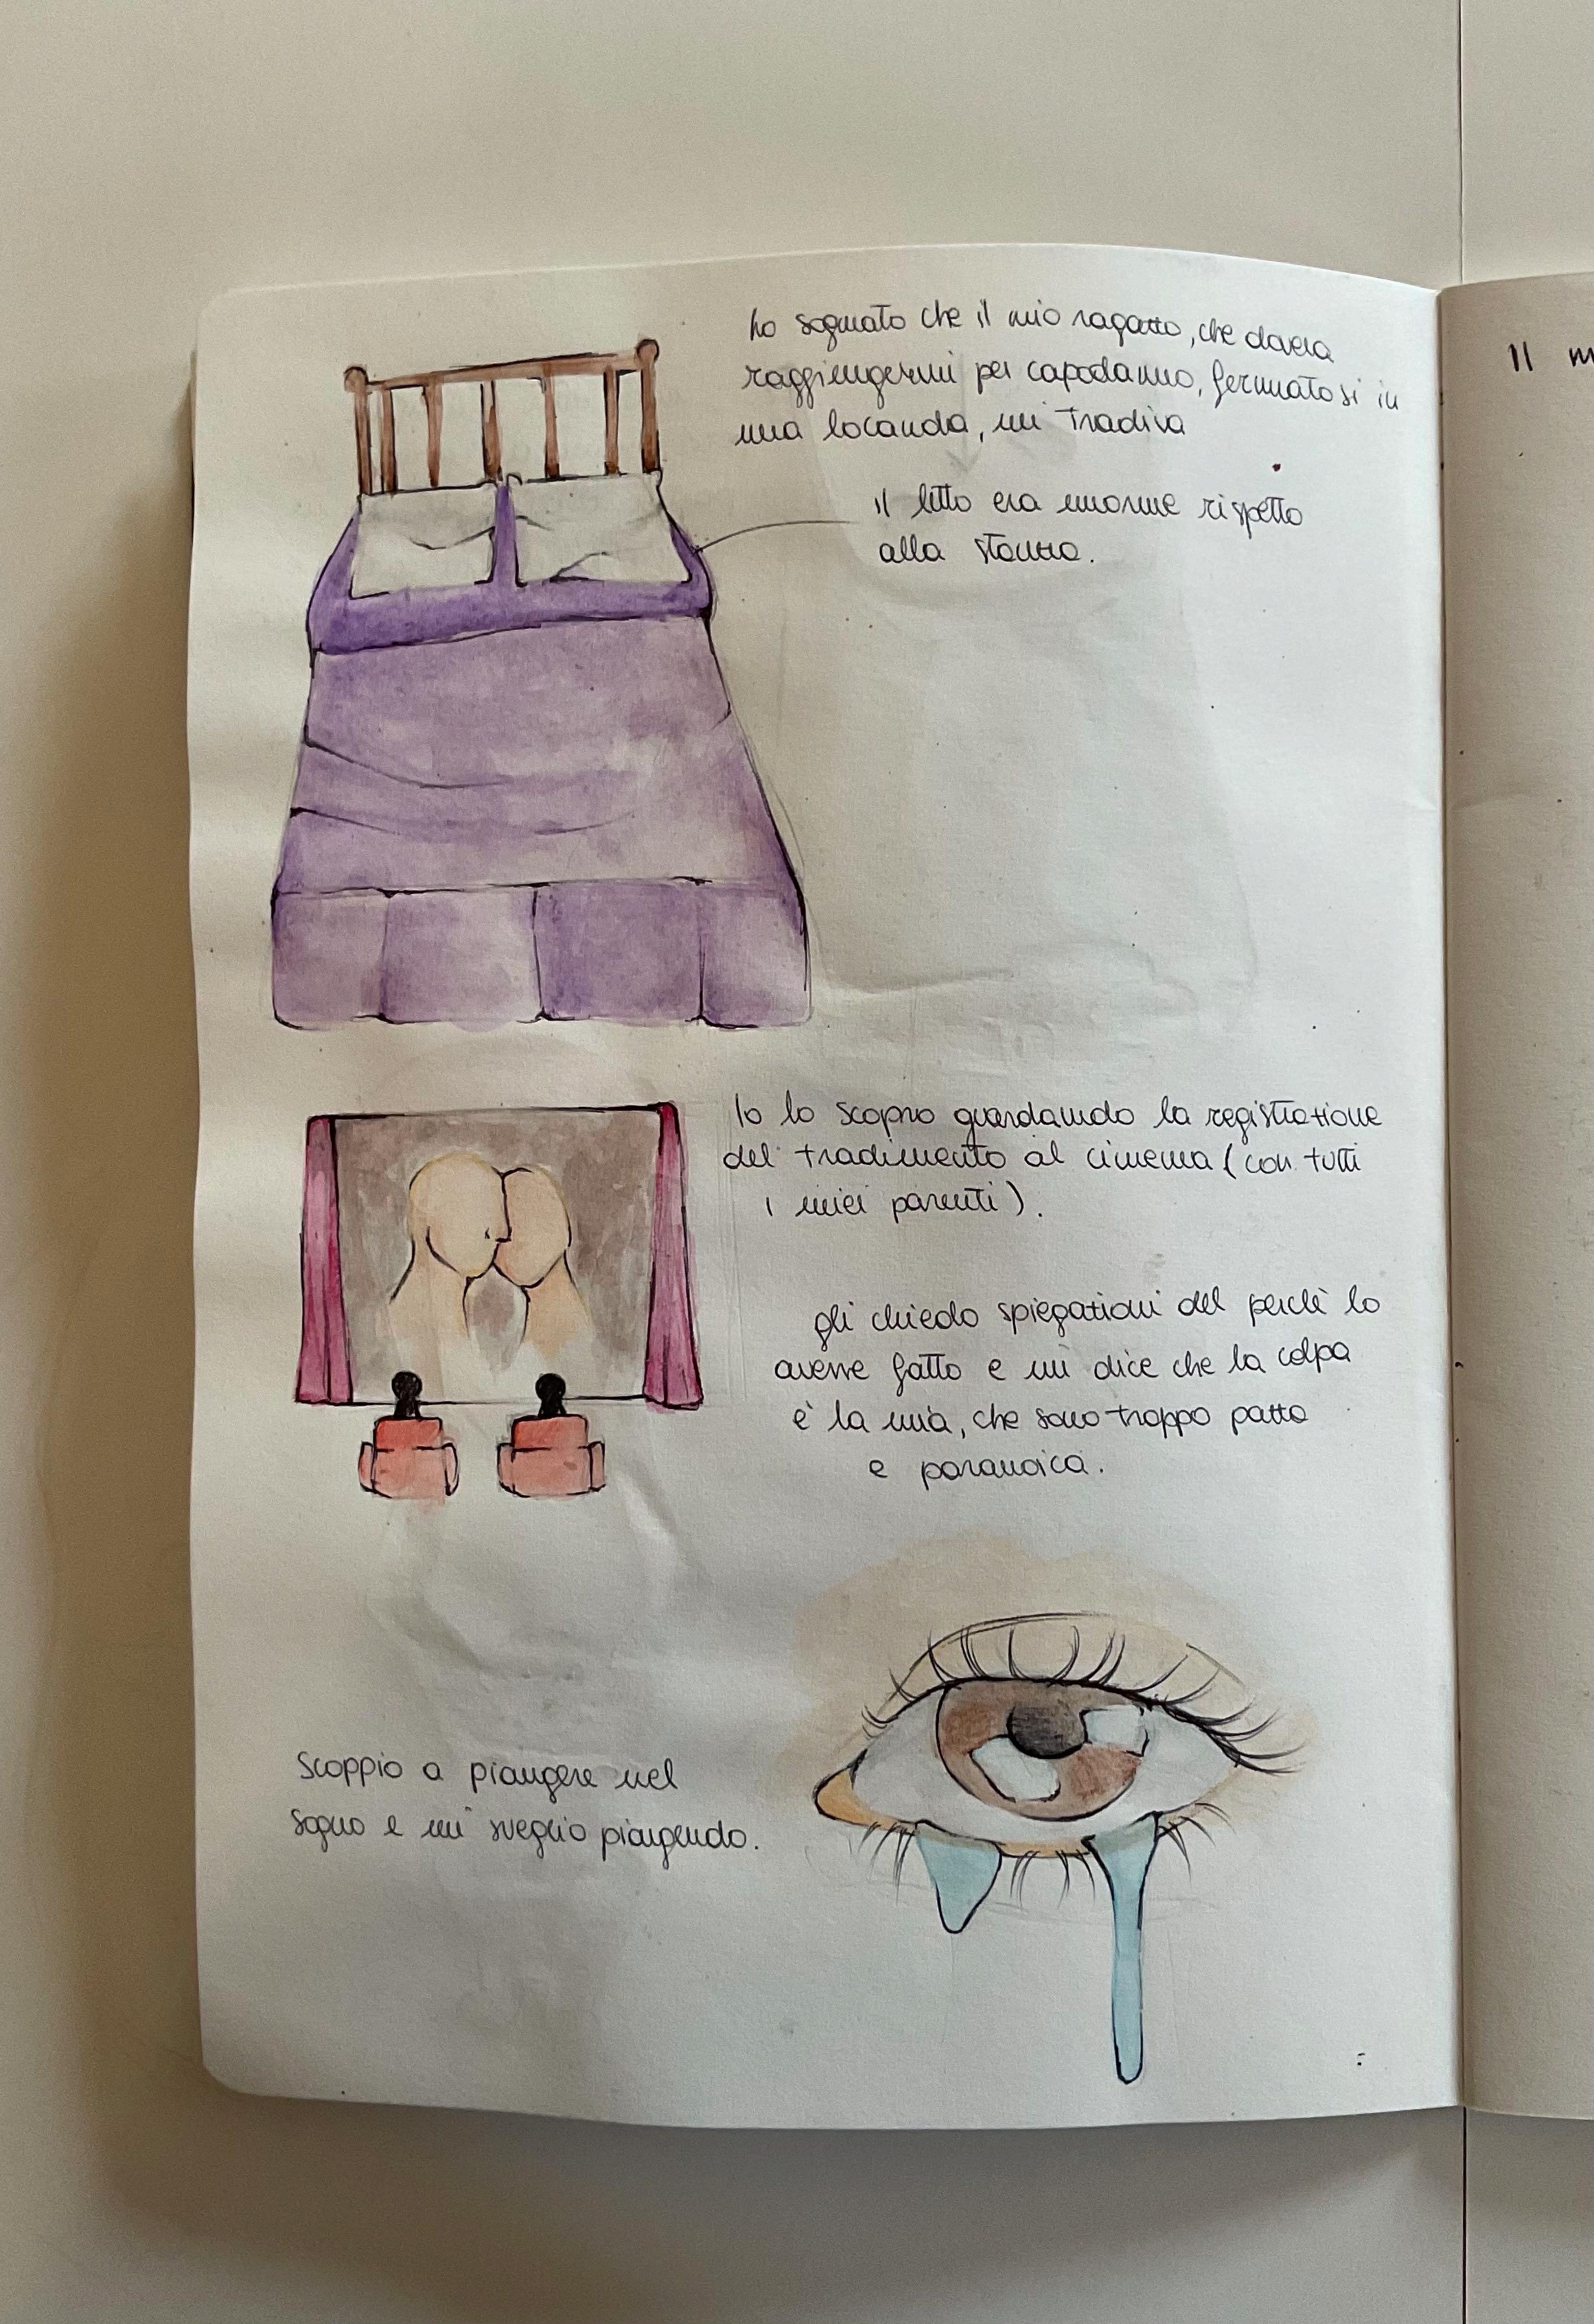 ho sognato che il mio ragazzo, che doveva
raggiungermi per capodanno, fermatosi in
una locanda, mi tradiva
il letto era enorme rispetto
alla stanza.
Io lo scopro guardando la registrazione
del tradimento al cinema (con tutti
i miei parenti).
gli chiedo spiegazioni del perchè lo
avesse fatto e mi dice che la colpa
è la mia, che sono troppo pazza
e paranoica.
Scoppio a piangere nel
sogno e mi sveglio piangendo.
Il